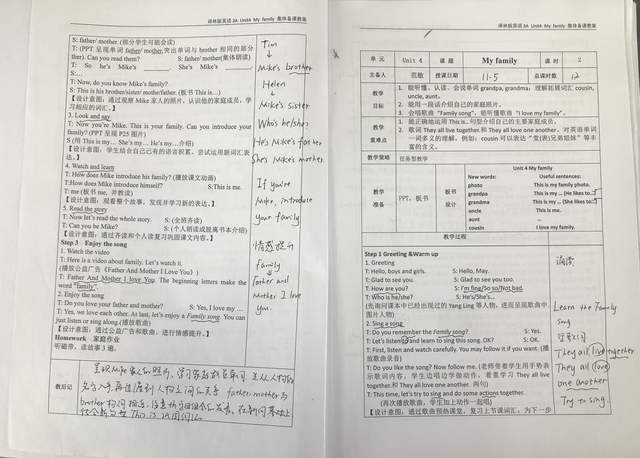 译林版英语 3A Unit4 My family 集体备课教案
S: father/ mother. (部分学生可能会读)
T: (PPT 呈现单词 father/ mother,突出单词与 brother 相同的部分
ther). Can you read them? S: father/ mother(集体朗读)
T: So he's Mike's She's Mike's
S:…
T: Now, do you know Mike's family?
S: This is his brother/sister/ mother/father. (板书 This is…)
【设计意图：通过观察 Mike 家人的照片，认识他的家庭成员，学
习相应的词汇。】
3. Look and say
T: Now you're Mike. This is your family. Can you introduce your
family? (PPT 呈现 P25 图片)
S (用 This is my… She's my… He's my…介绍)
【设计意图：学生结合自己已有的语言积累，尝试运用新词汇表
达。】
4. Watch and learn
T: How does Mike introduce his family? (播放课文动画)
T:How does Mike introduce himself? S:This is me.
T: me (板书 me, 并教读)
【设计意图：观看整个故事，发现并学习新的表达。】
5. Read the story
T: Now let's read the whole story. S: (全班齐读)
T: Can you be Mike? S: (个人朗读或脱离书本介绍)
【设计意图：通过齐读和个人读复习巩固课文内容。】
Step 3 Enjoy the song
1. Watch the video
T: Here is a video about family. Let's watch it.
(播放公益广告《Father And Mother I Love You》)
T: Father And Mother I Love You. The beginning letters make the
word "family".
2. Enjoy the song
T: Do you love your father and mother? S: Yes, I love my …
T: Yes, we love each other. At last, let's enjoy a Family song. You can
just listen or sing along.(播放歌曲)
【设计意图：通过公益广告和歌曲，进行情感提升。】
Homework 家庭作业
听磁带，读故事 3 遍。
教后记
Tim
↓
Mike's brother
Helen
↓
Mike's sister
Who's he/she?
He's Mike's father
She's Mike's mother.
If you're
Mike, introduce
your family
family
Father and
Mother I love
you.
译林版英语 3A Unit4 My family 集体备课教案
单 元 Unit 4 课 题 My family 课 时 2
主备人 范敏 授课日期 11-5 总课时数 12
教学
目标
1. 能听懂、认读、会说单词 grandpa, grandma；理解拓展词汇 cousin,
uncle, aunt。
2. 能用一段话介绍自己的家庭照片。
3. 会唱歌曲 "Family song"，能听懂歌曲 "I love my family"。
教学
重难点
1. 能正确地运用 This is…句型介绍自己的主要家庭成员。
2. 歌词 They all live together 和 They all love one another。对英语单词
一词多义的理解，例如：cousin 可以表达 "堂(表)兄弟姐妹" 等丰
富的含义。
教学策略 任务型教学
教学
准备 PPT，板书
板书
设计
Unit 4 My family
New words: Useful sentences:
photo This is my family photo.
grandpa This is my … (He likes to…)
grandma This is my … (She likes to…)
uncle This is me.
aunt …
cousin I love my family.
教学过程
Step 1 Greeting &Warm up
1. Greeting
T: Hello, boys and girls. S: Hello, May.
T: Glad to see you. S: Glad to see you too.
T: How are you? S: I'm fine/So so/Not bad.
T: Who is he/she? S: He's/She's…
(先询问课本中已经出现过的 Yang Ling 等人物，进而呈现歌曲中
图片人物)
2. Sing a song
T: Do you remember the Family song? S: Yes.
T: Let's listen and learn to sing this song. OK? S: OK.
T: First, listen and watch carefully. You may follow it if you want. (播
放歌曲录音)
T: Do you like the song? Now follow me. (老师带着学生用手势表
示歌词内容，学生边唱边学做动作，着重学习 They all live
together.和 They all love one another. 两句)
T: This time, let's try to sing and do some actions together.
(再次播放歌曲，学生加上动作一起唱)
【设计意图：通过歌曲预热课堂，复习上节课词汇，为下一步
诵读
Learn the Family
song
They all live together
They all love
one another
Try to sing.